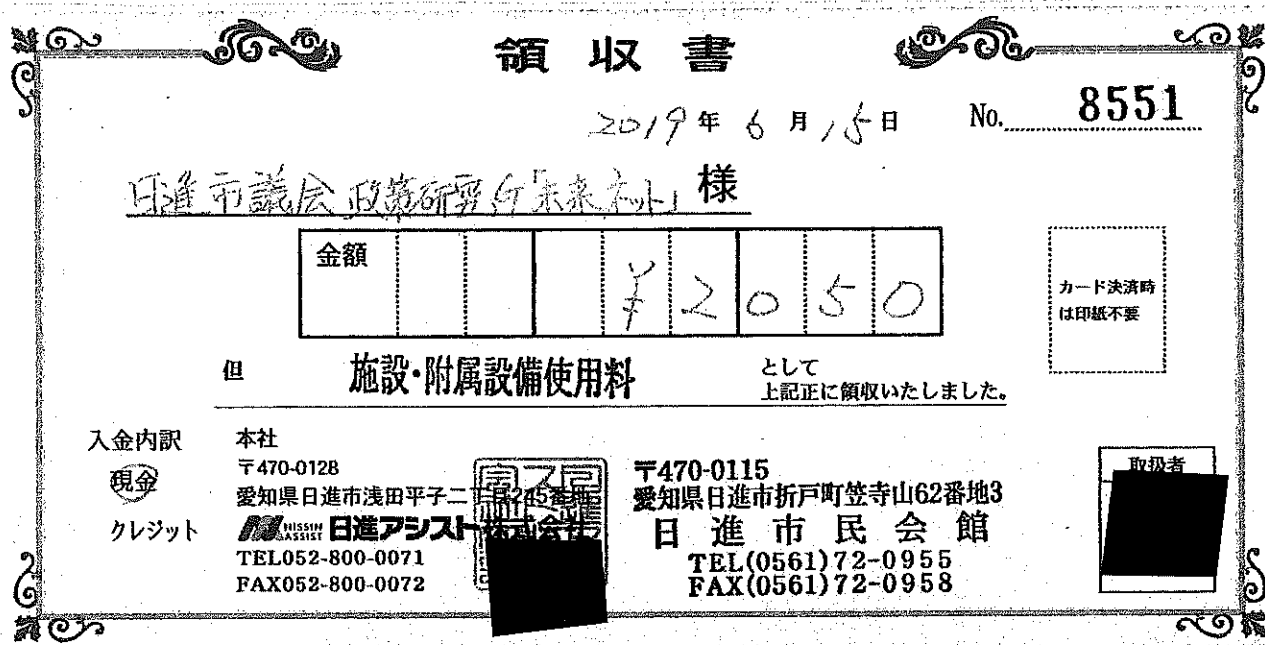 領収書
2019年6月15日 No. 8551
日進市議会 政策研究G「未来ネット」 様
金額 ¥2050
カード決済時
は印紙不要
但 施設・附属設備使用料 として
上記正に領収いたしました。
入金内訳
現金
クレジット
本社
〒470-0128
愛知県日進市浅田平子二丁目245番地
NISSIN ASSIST 日進アシスト株式会社
TEL052-800-0071
FAX052-800-0072
〒470-0115
愛知県日進市折戸町笠寺山62番地3
日進市民会館
TEL(0561)72-0955
FAX(0561)72-0958
取扱者